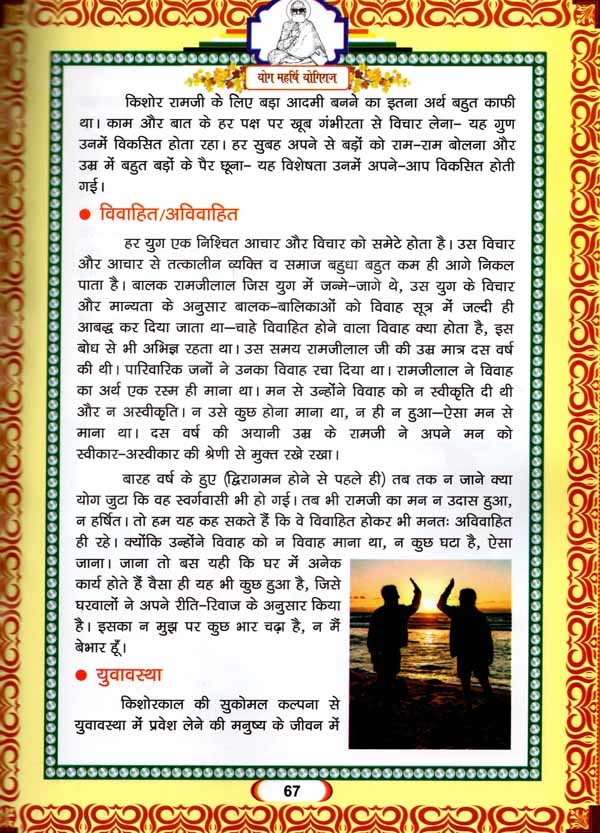 योग महर्षि योगिराज
किशोर रामजी के लिए बड़ा आदमी बनने का इतना अर्थ बहुत काफी
था। काम और बात के हर पक्ष पर खूब गंभीरता से विचार लेना– यह गुण
उनमें विकसित होता रहा। हर सुबह अपने से बड़ों को राम–राम बोलना और
उम्र में बहुत बड़ों के पैर छूना– यह विशेषता उनमें अपने–आप विकसित होती
गई।
● विवाहित/अविवाहित
हर युग एक निश्चित आचार और विचार को समेटे होता है। उस विचार
और आचार से तत्कालीन व्यक्ति व समाज बहुधा बहुत कम ही आगे निकल
पाता है। बालक रामजीलाल जिस युग में जन्मे–जागे थे, उस युग के विचार
और मान्यता के अनुसार बालक–बालिकाओं को विवाह सूत्र में जल्दी ही
आबद्ध कर दिया जाता था—चाहे विवाहित होने वाला विवाह क्या होता है, इस
बोध से भी अभिज्ञ रहता था। उस समय रामजीलाल जी की उम्र मात्र दस वर्ष
की थी। पारिवारिक जनों ने उनका विवाह रचा दिया था। रामजीलाल ने विवाह
का अर्थ एक रस्म ही माना था। मन से उन्होंने विवाह को न स्वीकृति दी थी
और न अस्वीकृति। न उसे कुछ होना माना था, न ही न हुआ—ऐसा मन से
माना था। दस वर्ष की अयानी उम्र के रामजी ने अपने मन को
स्वीकार–अस्वीकार की श्रेणी से मुक्त रखे रखा।
बारह वर्ष के हुए (द्विरागमन होने से पहले ही) तब तक न जाने क्या
योग जुटा कि वह स्वर्गवासी भी हो गई। तब भी रामजी का मन न उदास हुआ,
न हर्षित। तो हम यह कह सकते हैं कि वे विवाहित होकर भी मनतः अविवाहित
ही रहे। क्योंकि उन्होंने विवाह को न विवाह माना था, न कुछ घटा है, ऐसा
जाना। जाना तो बस यही कि घर में अनेक
कार्य होते हैं वैसा ही यह भी कुछ हुआ है, जिसे
घरवालों ने अपने रीति–रिवाज के अनुसार किया
है। इसका न मुझ पर कुछ भार चढ़ा है, न मैं
बेभार हूँ।
● युवावस्था
किशोरकाल की सुकोमल कल्पना से
युवावस्था में प्रवेश लेने की मनुष्य के जीवन में
67